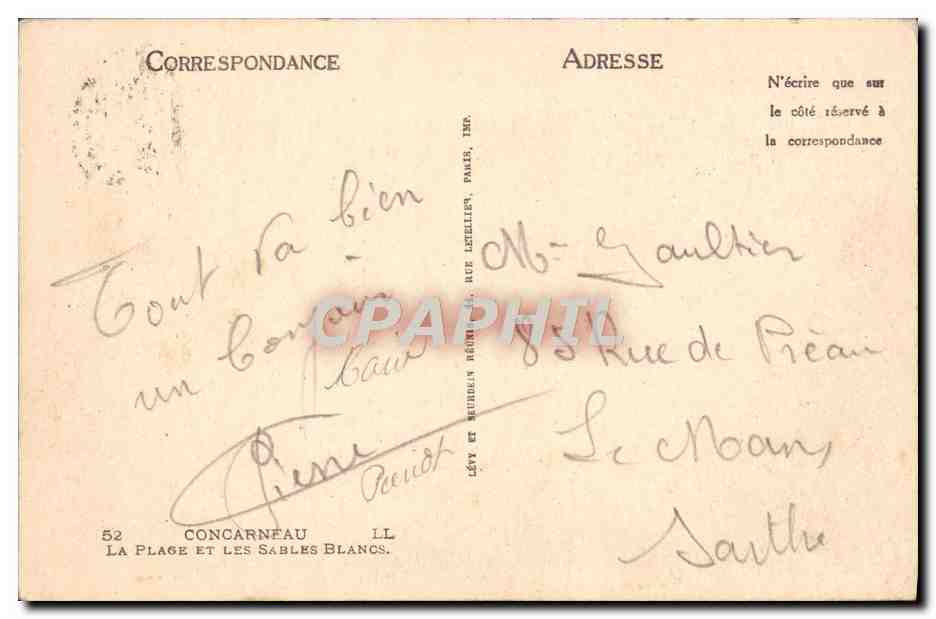 CORRESPONDANCE
ADRESSE
N'écrire que sur
le côté réservé à
la correspondance
Tout va bien
un bonjour
Pierre
LÉVY ET NEURDEIN RÉUNIS, 44, RUE LETELLIER, PARIS, IMP.
Mr Gaultier
85 Rue de Préau
Le Mans
Sarthe
CPAPHIL
52 CONCARNEAU LL
LA PLAGE ET LES SABLES BLANCS.